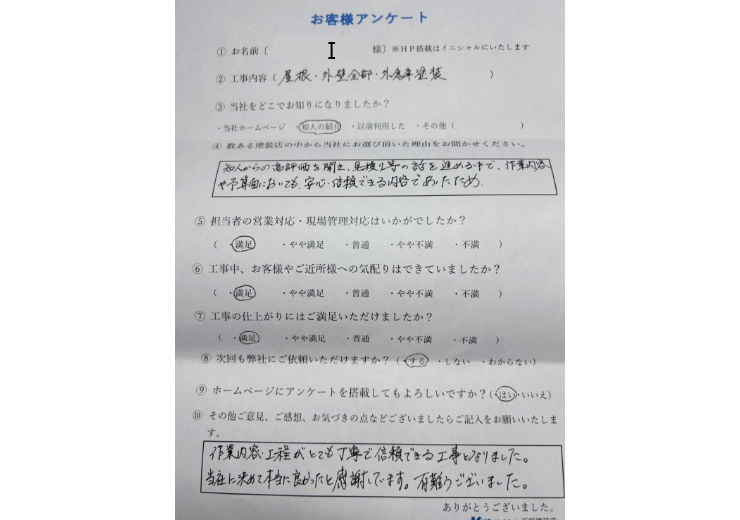 お客様アンケート
① お名前〔 様〕※HP搭載はイニシャルにいたします
② 工事内容（屋根・外壁全部・外倉庫塗装 ）
③ 当社をどこでお知りになりましたか？
・当社ホームページ ・知人の紹介 ・以前利用した ・その他（ ）
④ 数ある塗装店の中から当社にお選び頂いた理由をお聞かせください。
知人からの高評価を聞き、見積り等の話を進める中で、作業内容
や予算面においても、安心・信頼できる内容であったため
⑤ 担当者の営業対応・現場管理対応はいかがでしたか？
（ ・満足 ・やや満足 ・普通 ・やや不満 ・不満 ）
⑥ 工事中、お客様やご近所様への気配りはできていましたか？
（ ・満足 ・やや満足 ・普通 ・やや不満 ・不満 ）
⑦ 工事の仕上がりにはご満足いただけましたか？
（ ・満足 ・やや満足 ・普通 ・やや不満 ・不満 ）
⑧ 次回も弊社にご依頼いただけますか？（・する ・しない ・わからない）
⑨ ホームページにアンケートを搭載してもよろしいですか？（・はい・いいえ）
⑩ その他ご意見、ご感想、お気づきの点などございましたらご記入をお願いいたしま
す。
作業内容・工程がとても丁寧で信頼できる工事となりました。
当社に決めて本当に良かったと感謝しています。有難うございました。
ありがとうございました。